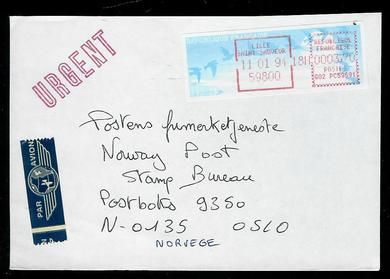 URGENT
LILLE
SAINT SAUVEUR
11 01 94 18H
59800
REPUBLIQUE
FRANCAISE
POSTE
002 PC59591
PAR AVION
Postens frimerketjeneste
Norway Post
Stamp Bureau
Postboks 9350
N-0135 OSLO
NORVEGE